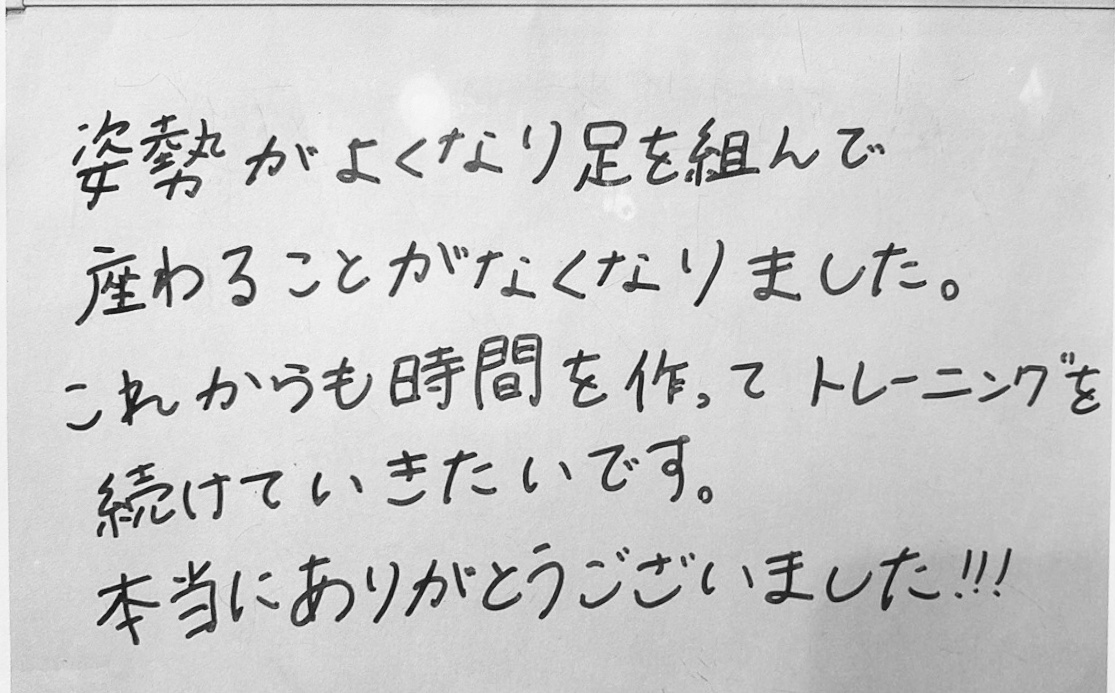 姿勢がよくなり足を組んで
座わることがなくなりました。
これからも時間を作ってトレーニングを
続けていきたいです。
本当にありがとうございました!!!